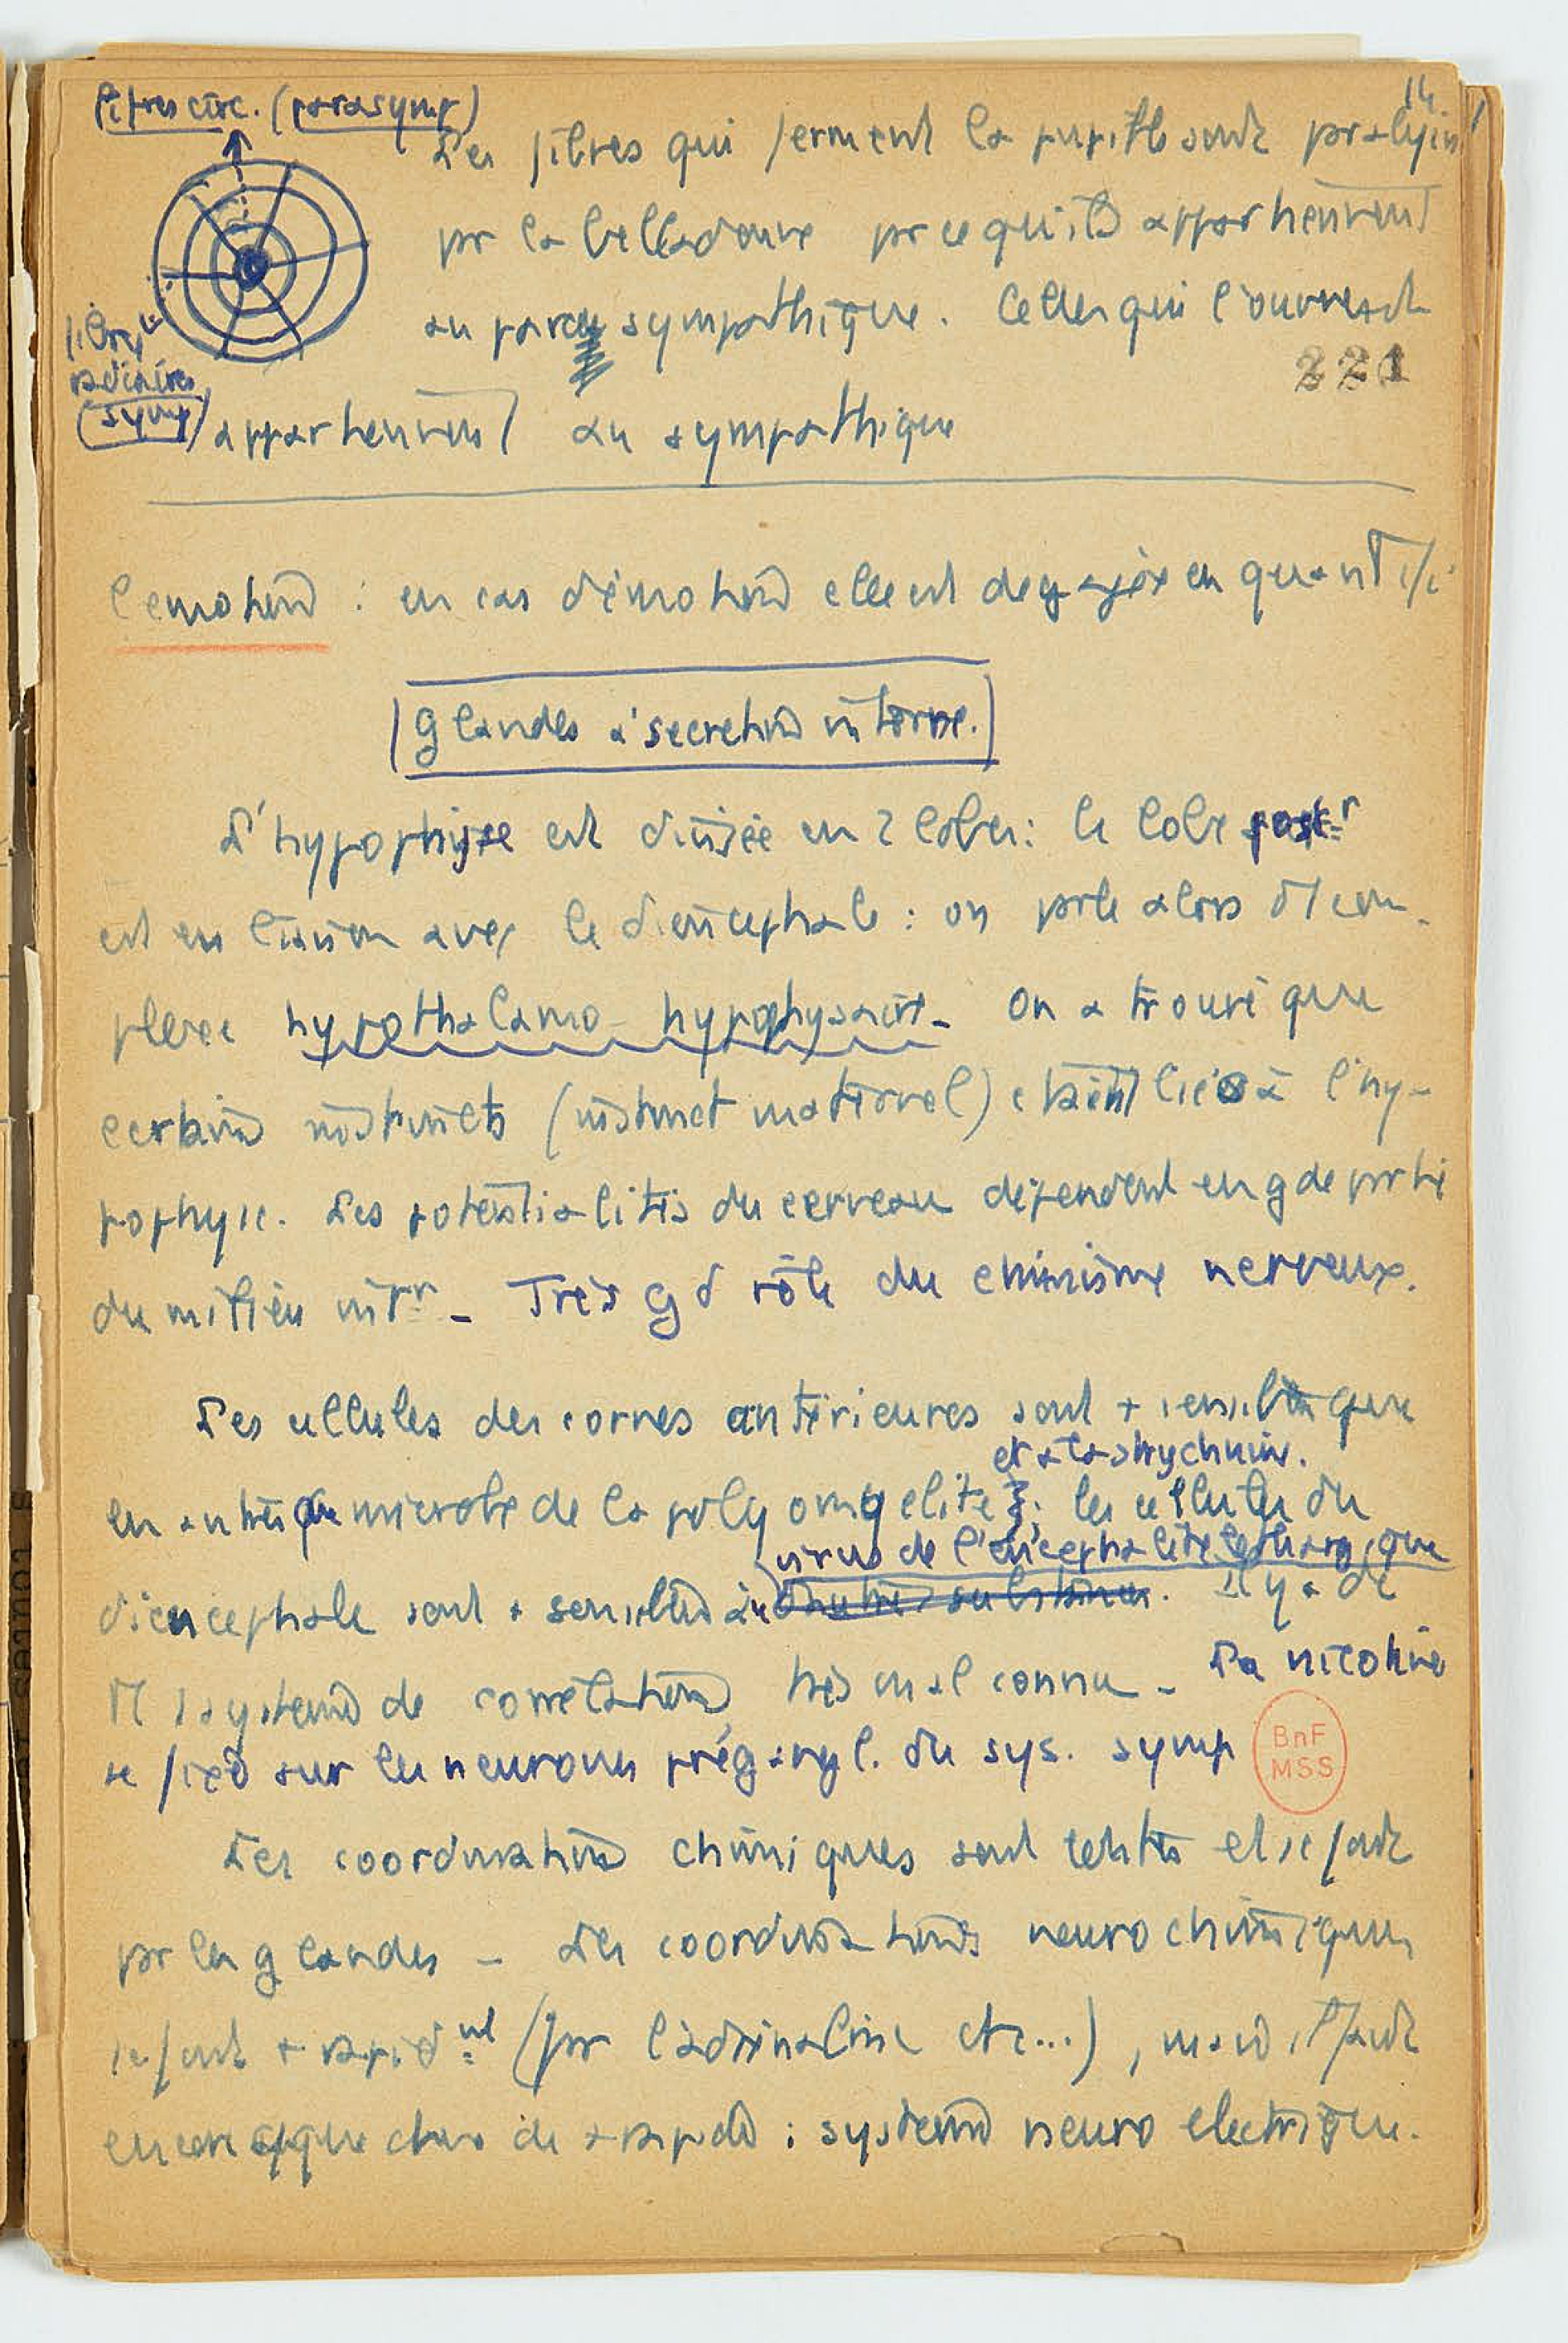 fibres circ. (parasymp)
14
Les fibres qui ferment la pupille sont paralysées
pr la belladonne pr ce qu'ils appartiennent
au para sympathique. Celles qui l'ouvrent
221
fibres
radiaires
(symp)
appartiennent au sympathique
L'emotion : en cas d'émotion elle est degagée en quantité
Glandes a secretion interne.
L'hypophyse est divisée en 2 lobes : le lobe postr
est en liaison avec le diencephale : on parle alors d'1 com-
plexe hypothalamo hypophysaire - On a trouvé que
certains instincts (instinct maternel) etaient liés à l'hy-
pophyse. Les potentialités du cerveau dépendent en gde partie
du milieu intr - Très gd rôle du chimisme nerveux.
Les cellules des cornes antérieures sont + sensibles que
et a la strychnine.
en autres microbe de la polyomyelite ; les cellules du
virus de l'encephalite lethargique
diencephale sont + sensibles au d'autres substances. Il y a de
systems de correlations très mal connu - La nicotine
se fixe sur les neurones prégangl. du sys. symp
BnF
MSS
Les coordinations chimiques sont lentes et se font
pr les glandes - Les coordinations neurochimiques
se font + rapidnt (pr l'adrénaline etc...), mais il faut
encore qque chose de + rapide : systeme neuro electrique.